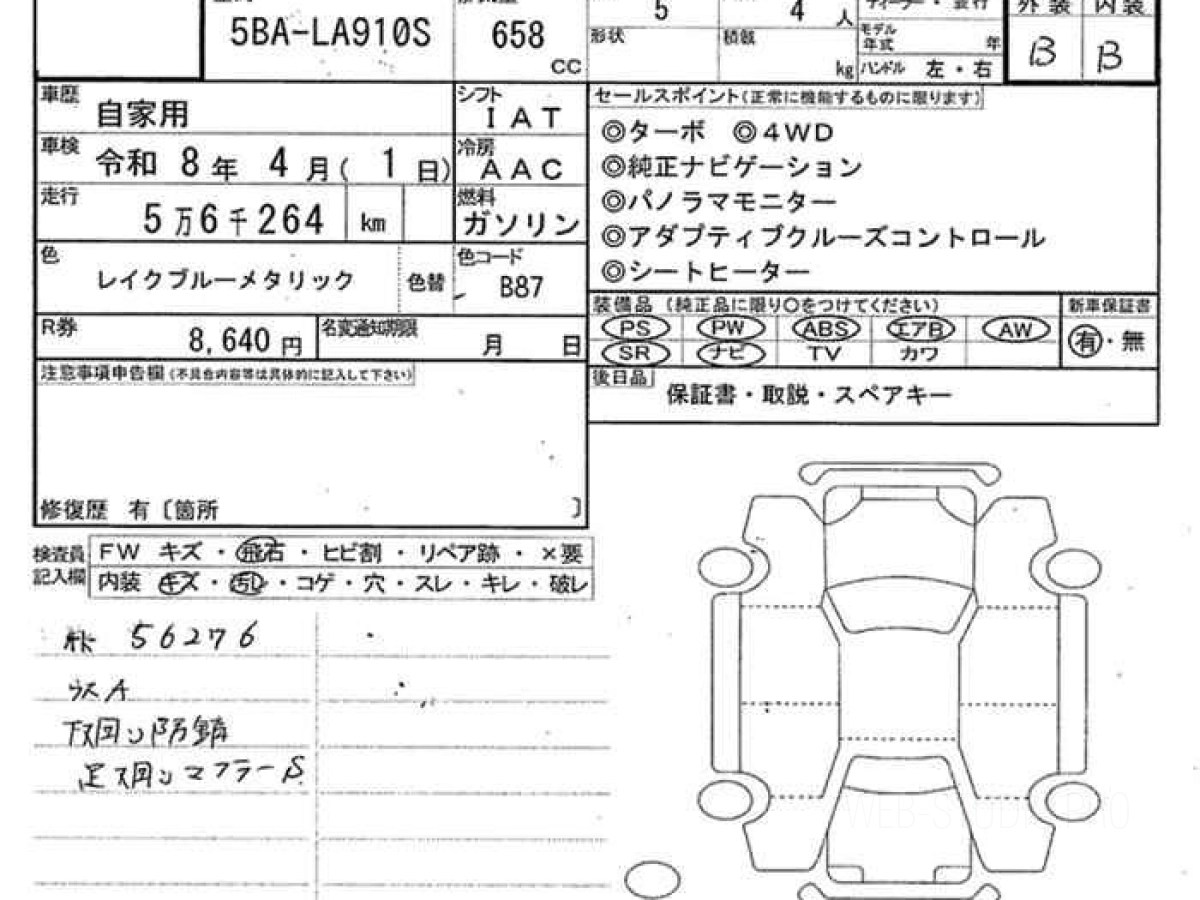 5BA-LA910S
658
CC
5
4 人
形状
積載
kg
モデル
年式
年
ハンドル 左・右
外装 内装
B B
車歴
自家用
シフト
IAT
車検
令和 8年 4月( 1日)
冷房
AAC
走行
5万6千264 km
燃料
ガソリン
色
レイクブルーメタリック
色替
色コード
B87
R券
8,640 円
名変通知期限
月 日
セールスポイント(正常に機能するものに限ります)
◎ターボ ◎4WD
◎純正ナビゲーション
◎パノラマモニター
◎アダプティブクルーズコントロール
◎シートヒーター
装備品 (純正品に限り○をつけてください)
新車保証書
PS PW ABS エアB AW
SR ナビ TV カワ
有・無
後日品
保証書・取説・スペアキー
注意事項申告欄(不具合内容等は具体的に記入して下さい)
修復歴 有〔箇所 〕
検査員
記入欄
FW キズ・飛石・ヒビ割・リペア跡・×要
内装 キズ・汚レ・コゲ・穴・スレ・キレ・破レ
56276
A
防錆
マフラーS
WEB-STUDIO PRO